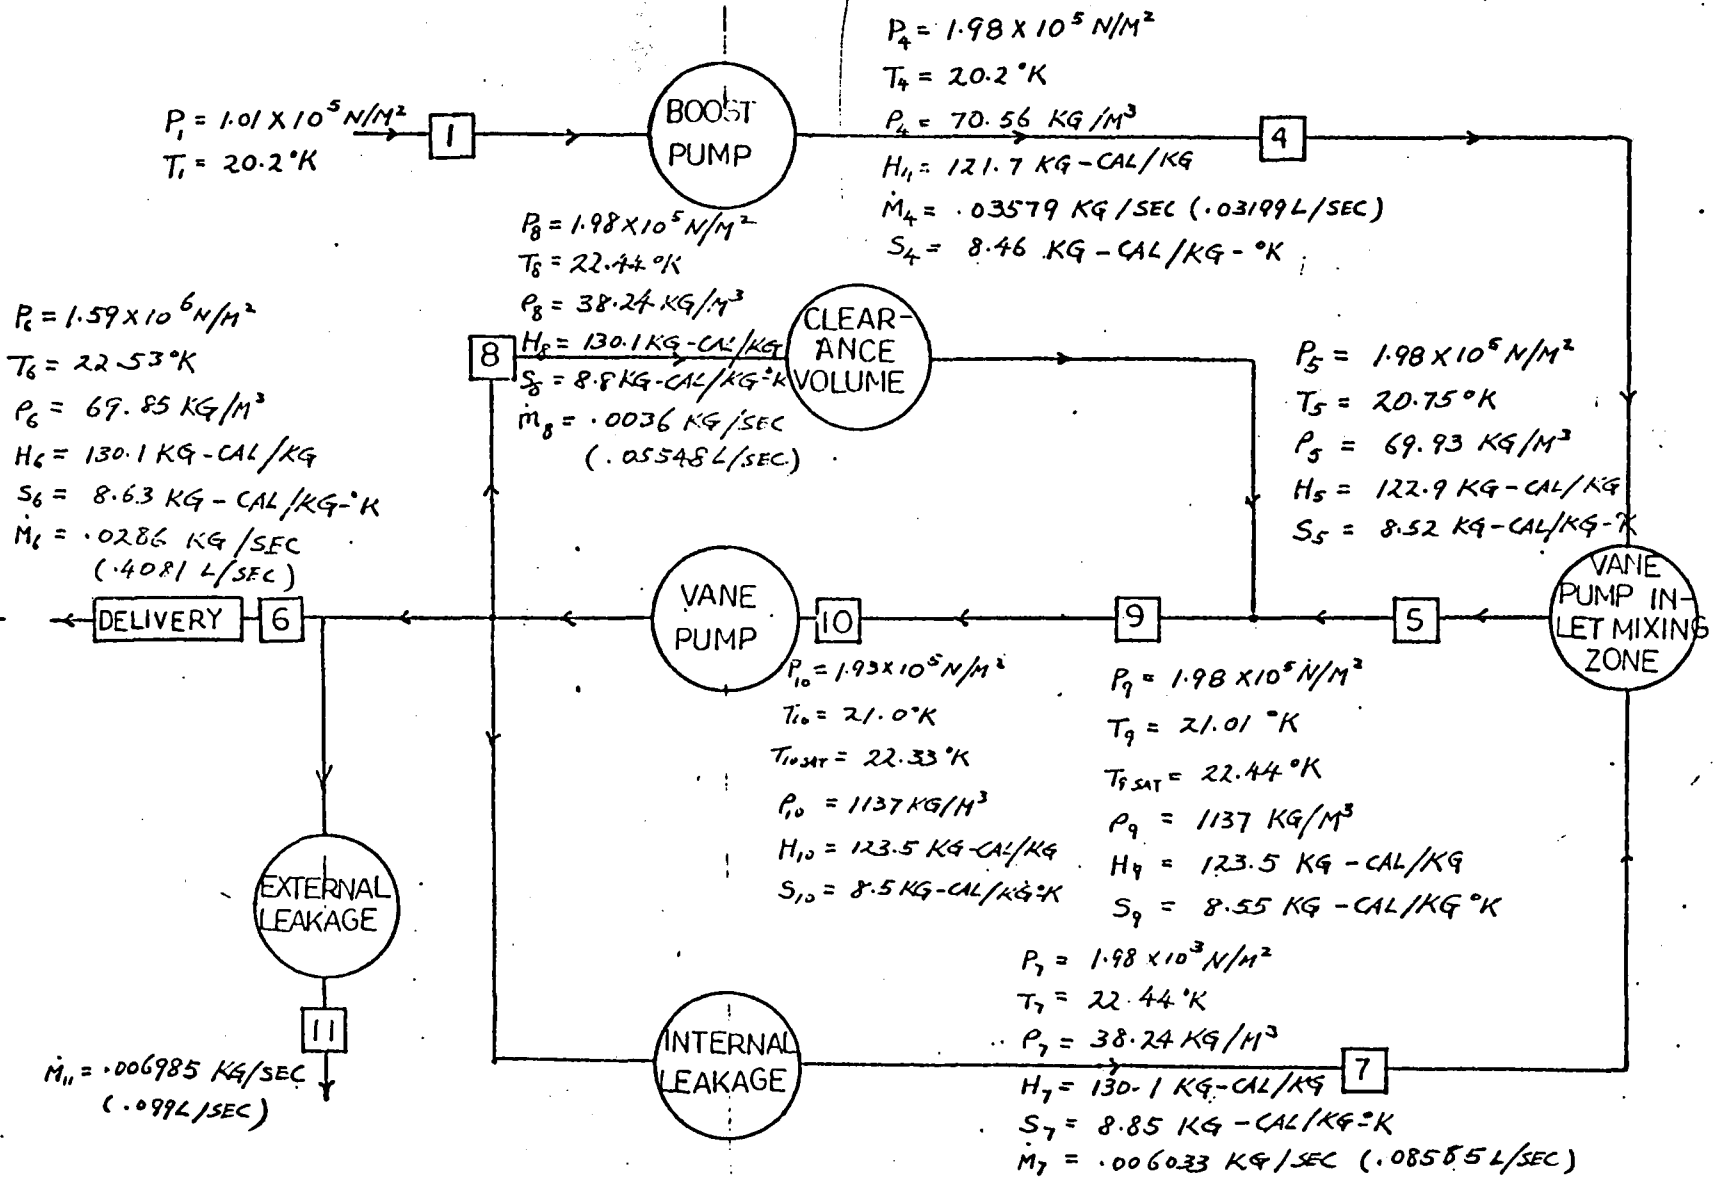 P₁ = 1.01 X 10⁵ N/M²
T₁ = 20.2 °K
1
BOOST
PUMP
P₄ = 1.98 X 10⁵ N/M²
T₄ = 20.2 °K
P₄ = 70.56 KG/M³
H₄ = 121.7 KG-CAL/KG
Ṁ₄ = .03579 KG/SEC (.03199 L/SEC)
S₄ = 8.46 KG-CAL/KG-°K
4
P₈ = 1.98 X 10⁵ N/M²
T₈ = 22.44 °K
ρ₈ = 38.24 KG/M³
H₈ = 130.1 KG-CAL/KG
S₈ = 8.8 KG-CAL/KG-°K
ṁ₈ = .0036 KG/SEC
(.05548 L/SEC)
8
CLEAR-
ANCE
VOLUME
P₆ = 1.59 X 10⁶ N/M²
T₆ = 22.53 °K
ρ₆ = 69.85 KG/M³
H₆ = 130.1 KG-CAL/KG
S₆ = 8.63 KG-CAL/KG-°K
Ṁ₆ = .0286 KG/SEC
(.4081 L/SEC)
P₅ = 1.98 X 10⁵ N/M²
T₅ = 20.75 °K
P₅ = 69.93 KG/M³
H₅ = 122.9 KG-CAL/KG
S₅ = 8.52 KG-CAL/KG-°K
DELIVERY
6
VANE
PUMP
10
9
5
VANE
PUMP IN-
LET MIXING
ZONE
P₁₀ = 1.93 X 10⁵ N/M²
T₁₀ = 21.0 °K
T₁₀ SAT = 22.33 °K
ρ₁₀ = 1137 KG/M³
H₁₀ = 123.5 KG-CAL/KG
S₁₀ = 8.5 KG-CAL/KG-°K
P₉ = 1.98 X 10⁵ N/M²
T₉ = 21.01 °K
T₉ SAT = 22.44 °K
ρ₉ = 1137 KG/M³
H₉ = 123.5 KG-CAL/KG
S₉ = 8.55 KG-CAL/KG °K
EXTERNAL
LEAKAGE
11
Ṁ₁₁ = .006985 KG/SEC
(.099 L/SEC)
INTERNAL
LEAKAGE
P₇ = 1.98 X 10³ N/M²
T₇ = 22.44 °K
P₇ = 38.24 KG/M³
H₇ = 130.1 KG-CAL/KG
S₇ = 8.85 KG-CAL/KG-°K
Ṁ₇ = .006033 KG/SEC (.08585 L/SEC)
7